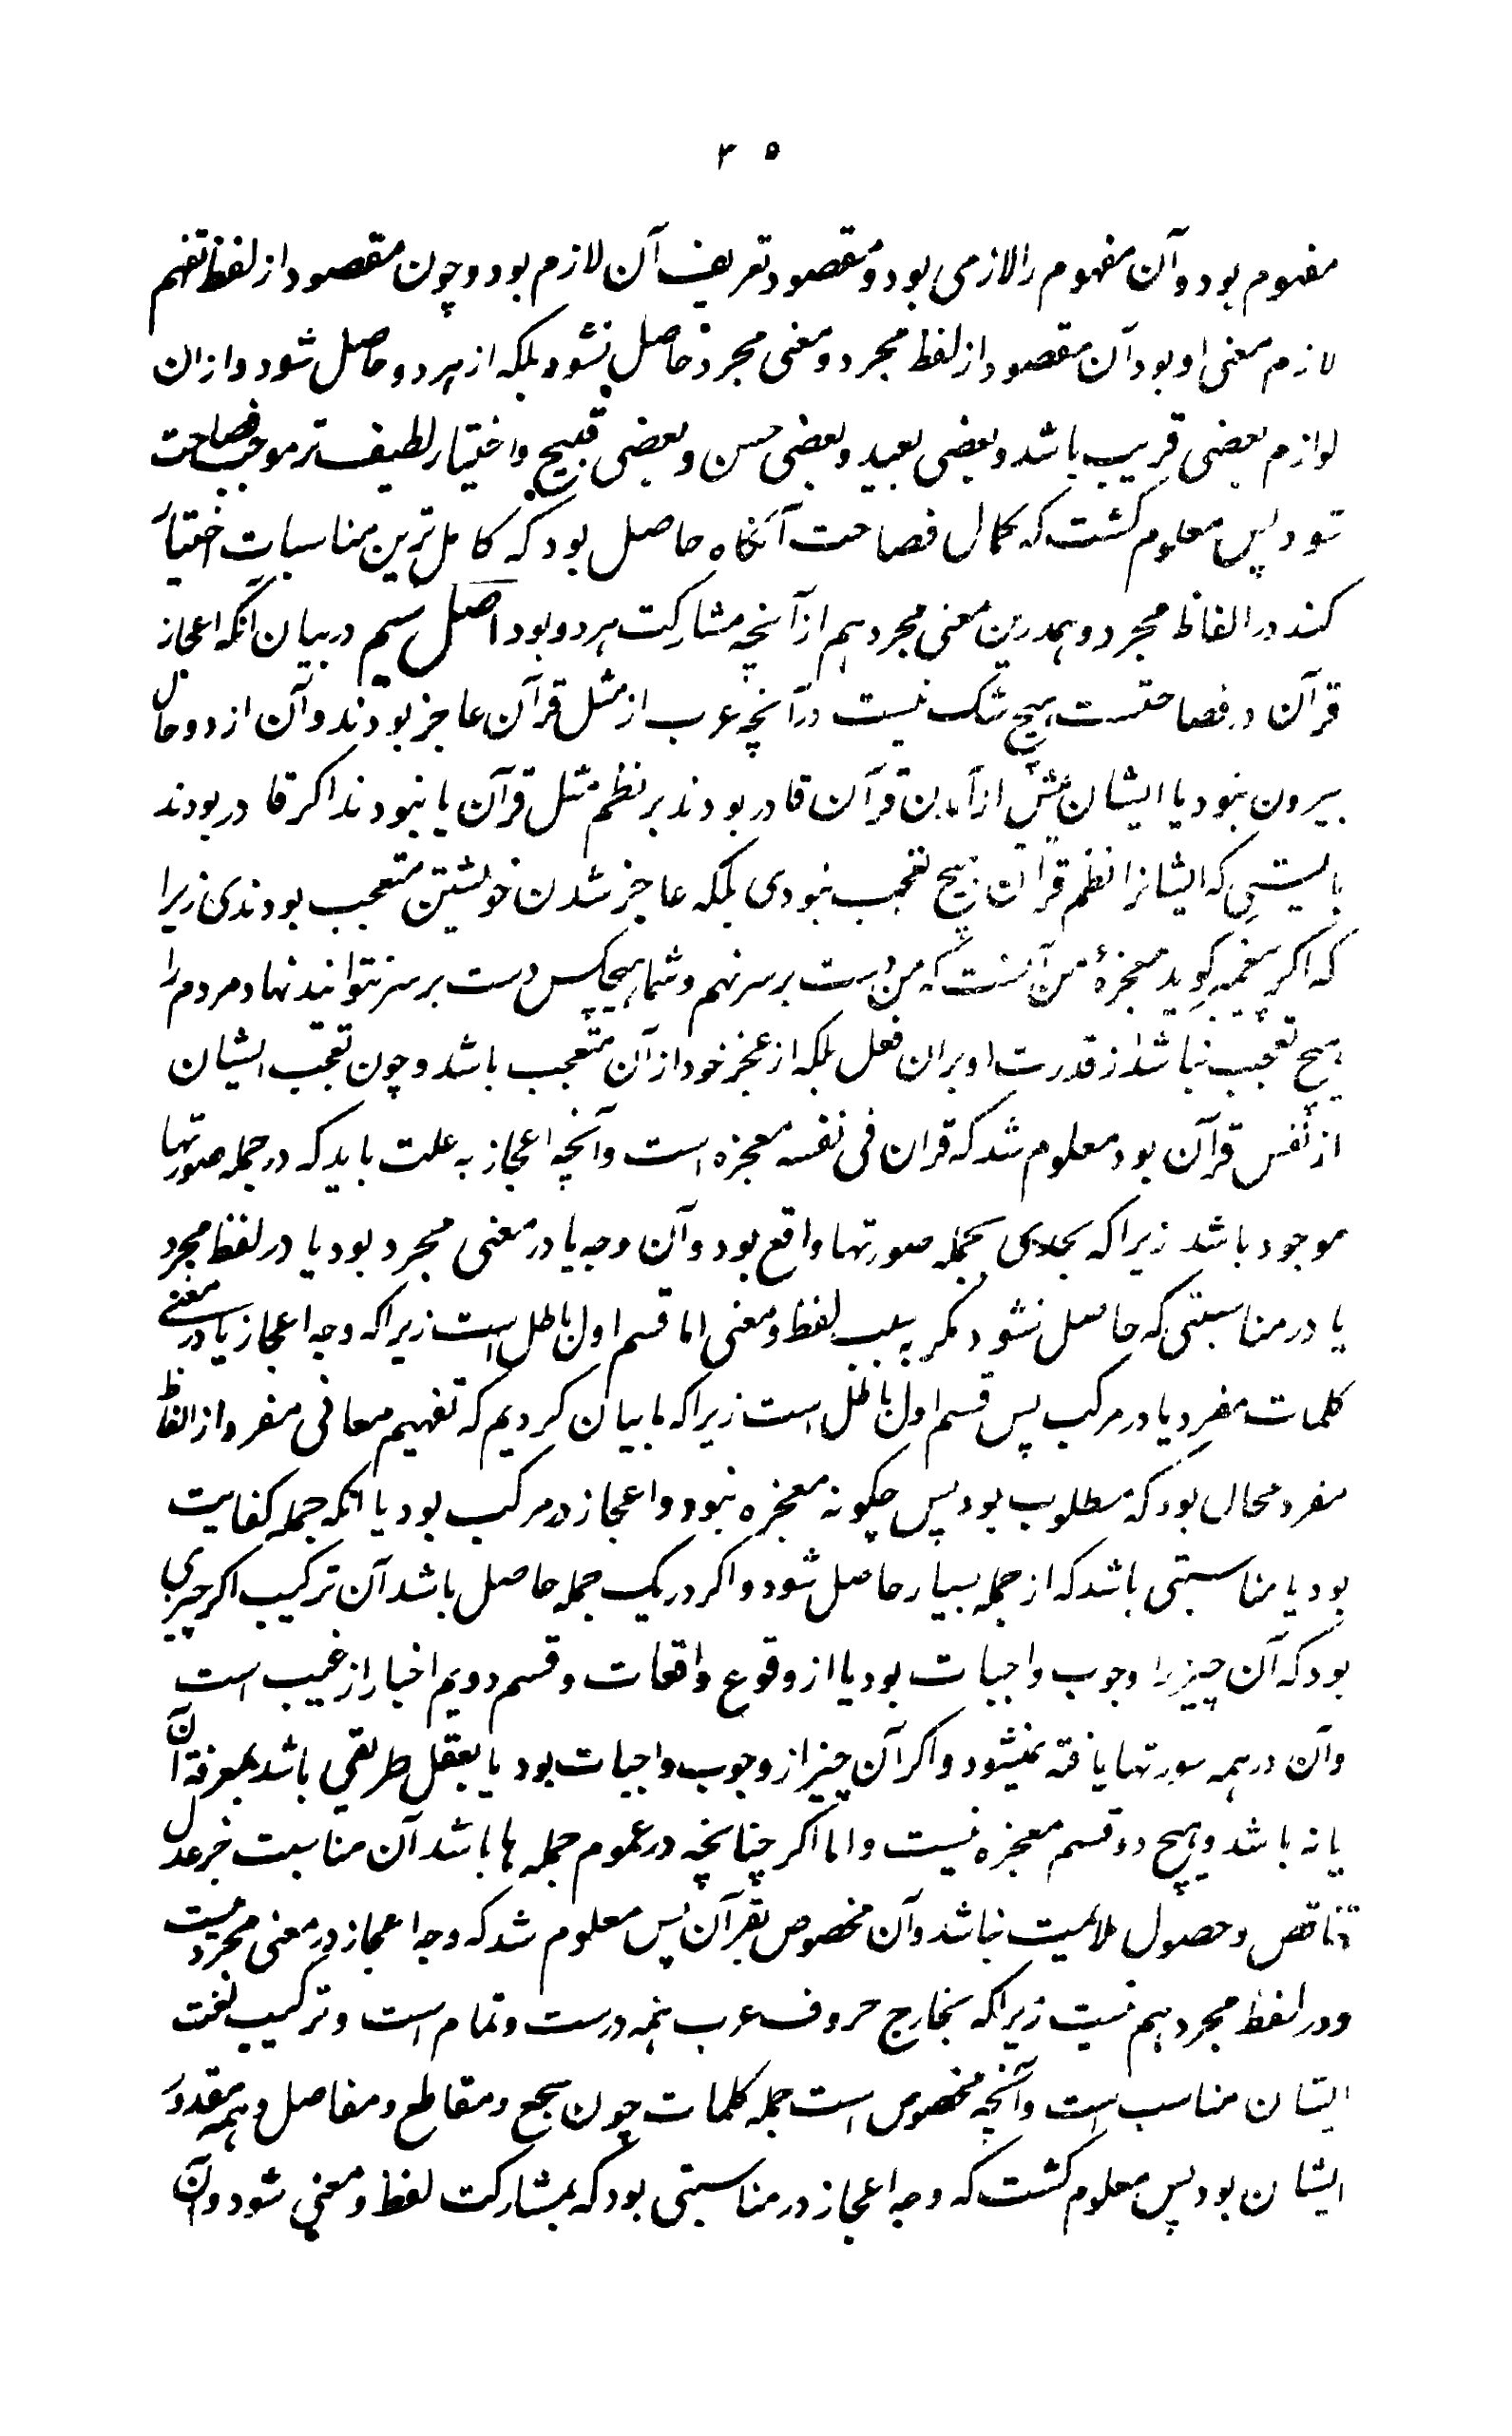 ۳۵
مفهوم بود و آن مفهوم را لازمی بود و مقصود تعریف آن لازم بود و چون مقصود از لفظ تفهم
لازم معنی او بود آن مقصود از لفظ مجرد و معنی مجرد حاصل نشود بلکه از هر دو حاصل شود و ازان
لوازم بعضی قریب باشد و بعضی بعید و بعضی حسن و بعضی قبیح و اختیار لطیف تر موجب فصاحت
شود پس معلوم کشت که کمال فصاحت آنگاه حاصل بود که کامل ترین مناسبات اختیار
کند در الفاظ مجرد و همدرین معنی مجرد هم از آنچه مشارکت هر دو بود اصل سیم در بیان انکه اعجاز
قرآن در فصاحتست هیچ شک نیست در آنچه عرب از مثل قرآن عاجز بودند و آن از دو حال
بیرون نبود یا ایشان پیش از آمدن قرآن قادر بودند بر نظم مثل قرآن یا نبودند اکر قادر بودند
بایستی که ایشانرا نظم قرآن هیچ تعجب نبودی بلکه عاجز شدن خویشتن متعجب بودندی زیرا
که اکر پیغمبر کوید معجزهٔ من آنست که من دست بر سر نهم و شما هیچکس دست بر سر نتوانید نهاد مردم را
هیچ تعجب نباشد از قدرت او بران فعل بلکه از عجز خود از آن متعجب باشد و چون تعجب ایشان
از نفس قرآن بود معلوم شد که قران فی نفسه معجزه است و آنچه اعجاز به علت باید که در جمله صورتها
موجود باشد زیرا که بجملگی صورتها واقع بود و آن وجه یا در معنی مجرد بود یا در لفظ مجرد
یا در مناسبتی که حاصل نشود مکر به سبب لفظ و معنی اما قسم اول باطل است زیرا که وجه اعجاز یا در معنی
کلمات مفرد یا در مرکب پس قسم اول باطل است زیرا که ما بیان کردیم که تفهیم معانی مفرد از الفاظ
مفرد محال بود که مطلوب بود پس چکونه معجزه نبود و اعجاز در مرکب بود یا انکه جمله کفایت
بود یا مناسبتی باشد که از جمله بسیار حاصل شود و اکر در یک جمله حاصل باشد آن ترکیب اکر چیزی
بود که آن چیز را وجوب واجبات بود یا از وقوع واقعات و قسم دویم اخبار از غیب است
و آن در همه سورتها یافته نمیشود و اکر آن چیز از وجوب واجبات بود یا بعقل طریقی باشد بمعرفة آن
یا نه باشد و هیچ دو قسم معجزه نیست و اما اکر چنانچه در عموم جمله ها باشد آن مناسبت جز عدل
تناقص و حصول ملائمیت نباشد و آن مخصوص بقرآن پس معلوم شد که وجه اعجاز در معنی مجرد نیست
و در لفظ مجرد هم نیست زیرا که مخارج حروف عرب همه درست و تمام است و ترکیب لغت
ایشان مناسب است و آنچه مخصوص است جمله کلمات چون سجع و مقاطع و مفاصل و همه مقدور
ایشان بود پس معلوم کشت که وجه اعجاز در مناسبتی بود که بمشارکت لفظ و معنی شود و آن